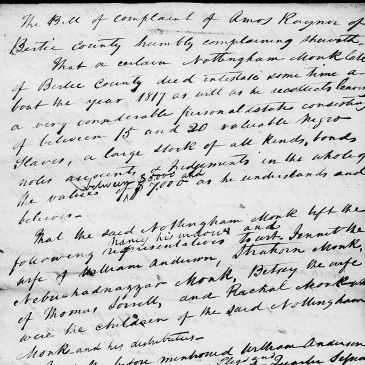 The Bill of complaint of Amos Raynor of
Bertie County humbly complaining sheweth
That a certain Nottingham Monk late
of Bertie County died intestate some time a-
bout the year 1817 as will as he recollects leaving
a very considerable personal estate consisting
of between 15 and 20 valuable Negro
Slaves, a large stock of all kinds, bonds
notes accounts & Judgements in the whole of
between $5000 and
the value of $7000 as he understands and
believes.
That the said Nottingham Monk left the
Nancy his widow and
following representatives to wit Jennet the
wife of William Anderson, Strahorn Monk,
Nebuchadnazzar Monk, Betsey the wife
of Thomas Sorrell, and Rachal Monk
were the children of the said Nottingham
Monk and his distributees.
before mentioned William Anderson
Quarter